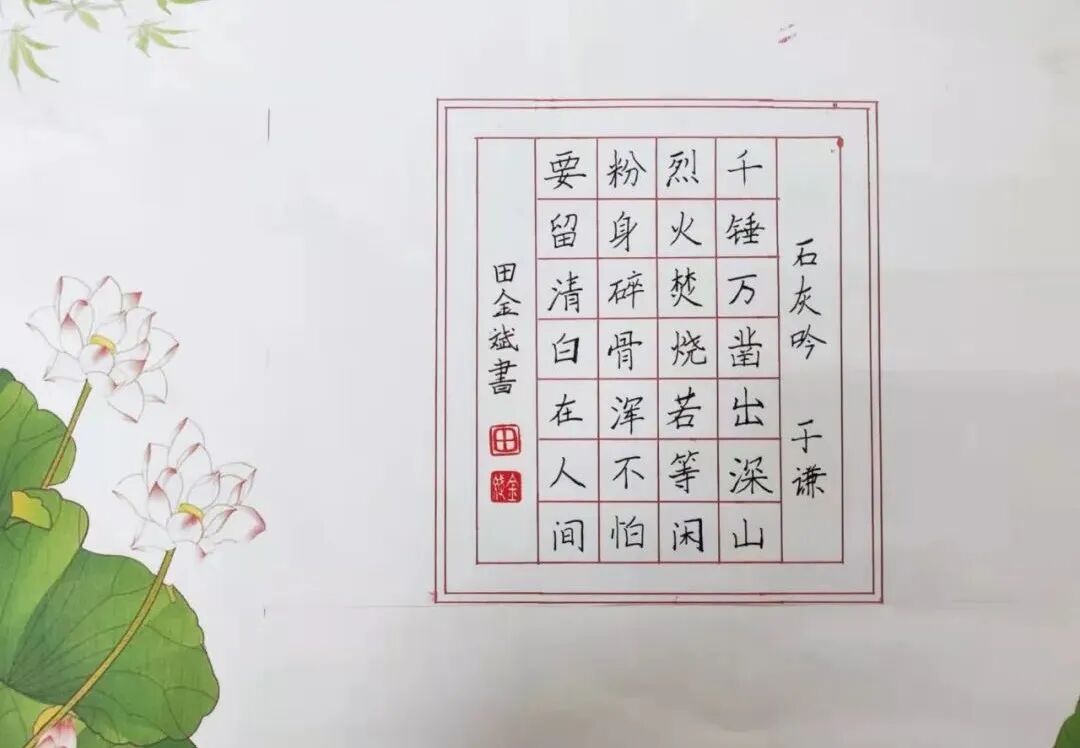 石灰吟 于谦
千锤万凿出深山
烈火焚烧若等闲
粉身碎骨浑不怕
要留清白在人间
田金斌書
田
金斌